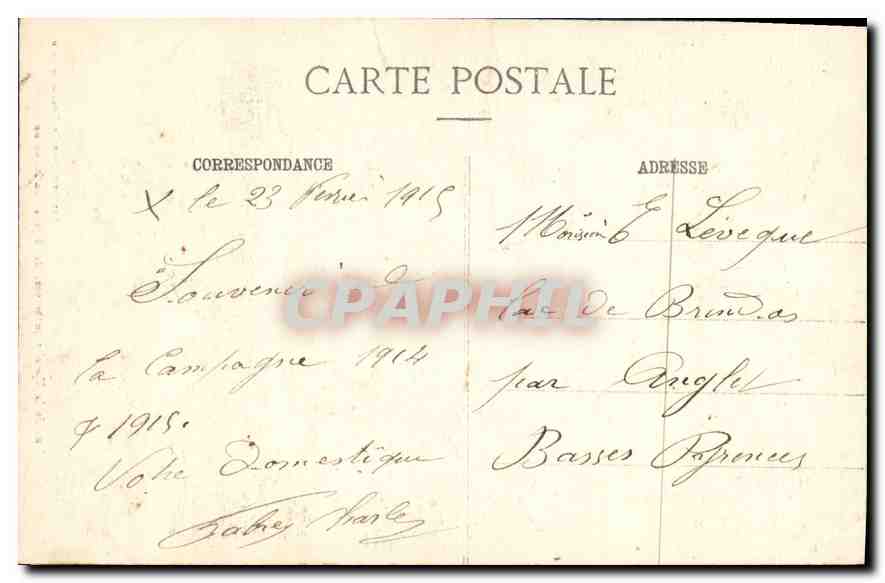 CARTE POSTALE
CORRESPONDANCE
X le 23 Février 1915
Souvenir de
la Campagne 1914
& 1915.
Votre Domestique
Charles
ADRESSE
E Lévêque
lac de Brindos
par Anglet
Basses Pyrenees
CPAPHIL